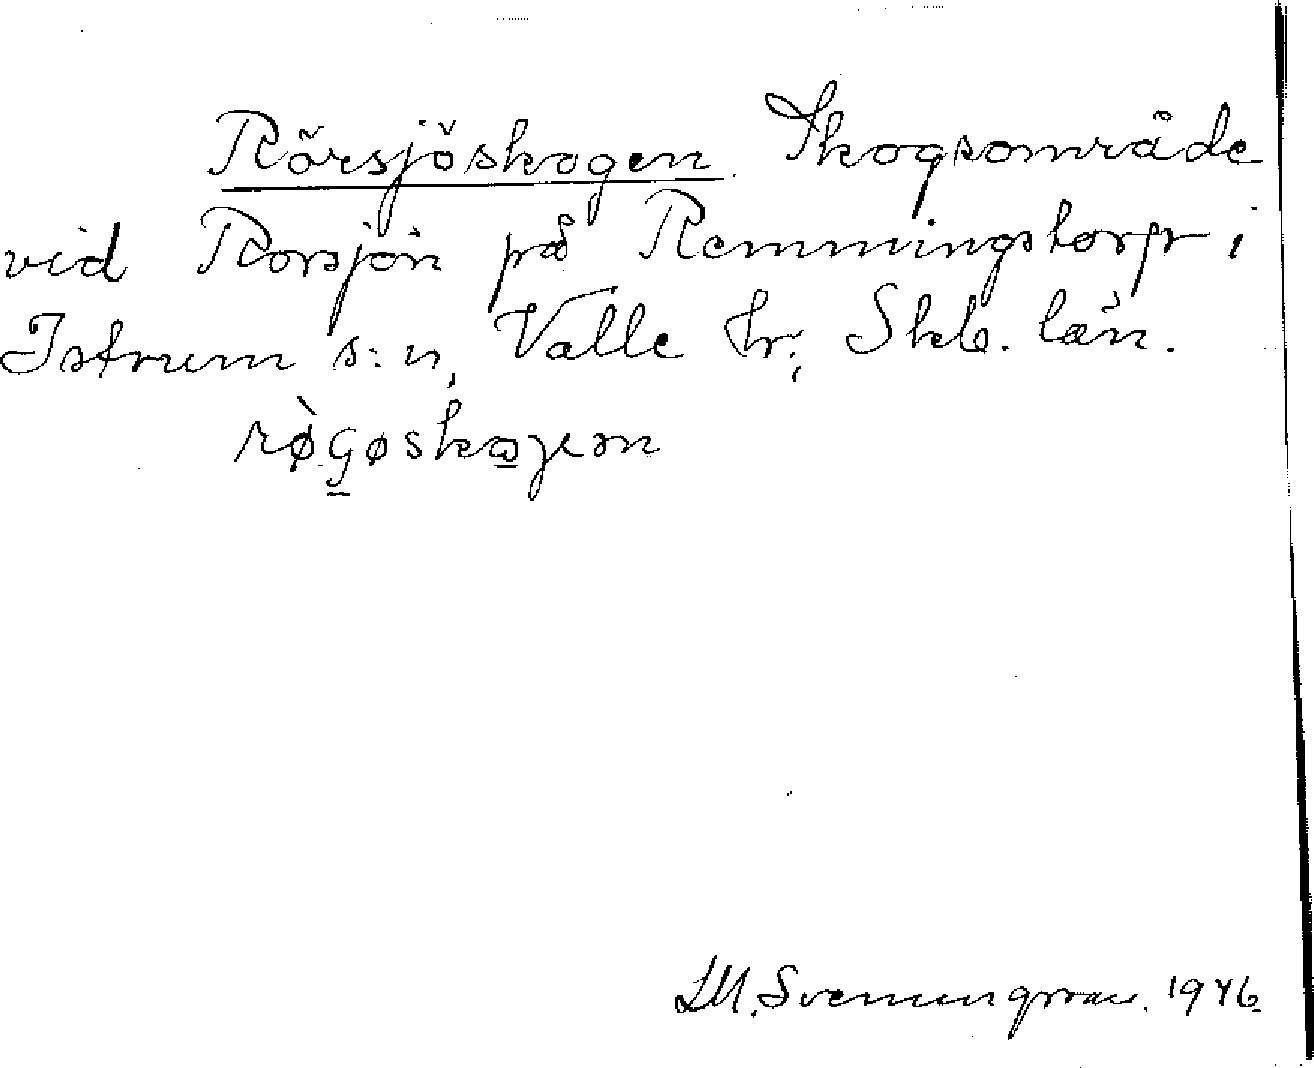 Rörsjöskogen. Skogsområde
vid Rörsjön på Remmingstorp i
Istrum s:n, Valle hr; Skb. län.
rø̀gøskogen
LM. Svenungsson. 1946